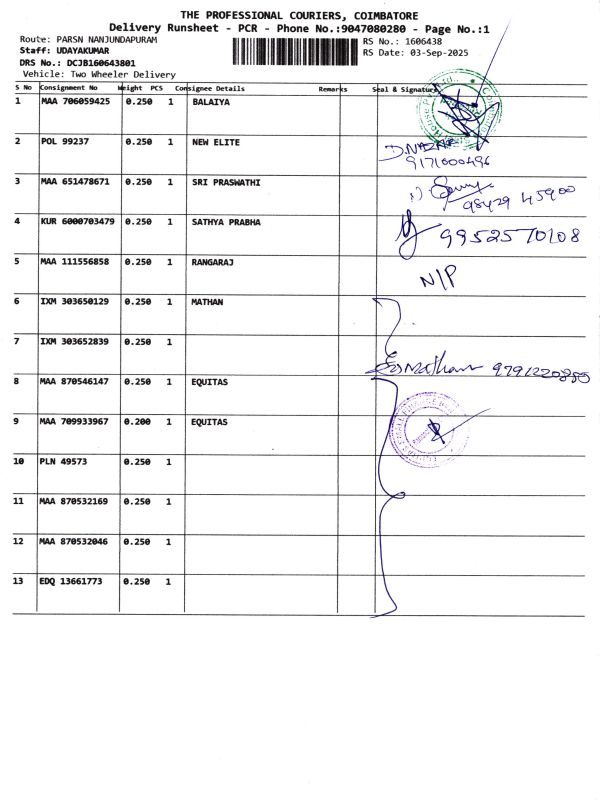 THE PROFESSIONAL COURIERS, COIMBATORE
Delivery Runsheet - PCR - Phone No.:9047080280 - Page No.:1
Route: PARSN NANJUNDAPURAM
RS No.: 1606438
Staff: UDAYAKUMAR
RS Date: 03-Sep-2025
DRS No.: DCJB160643801
Vehicle: Two Wheeler Delivery
S No Consignment No Weight PCS Consignee Details Remarks Seal & Signature
1 MAA 706059425 0.250 1 BALAIYA
2 POL 99237 0.250 1 NEW ELITE
9171000496
3 MAA 651478671 0.250 1 SRI PRASWATHI
98429 45900
4 KUR 6000703479 0.250 1 SATHYA PRABHA
9952570108
5 MAA 111556858 0.250 1 RANGARAJ
N/P
6 IXM 303650129 0.250 1 MATHAN
7 IXM 303652839 0.250 1
8 MAA 870546147 0.250 1 EQUITAS
9 MAA 709933967 0.200 1 EQUITAS
10 PLN 49573 0.250 1
11 MAA 870532169 0.250 1
12 MAA 870532046 0.250 1
13 EDQ 13661773 0.250 1